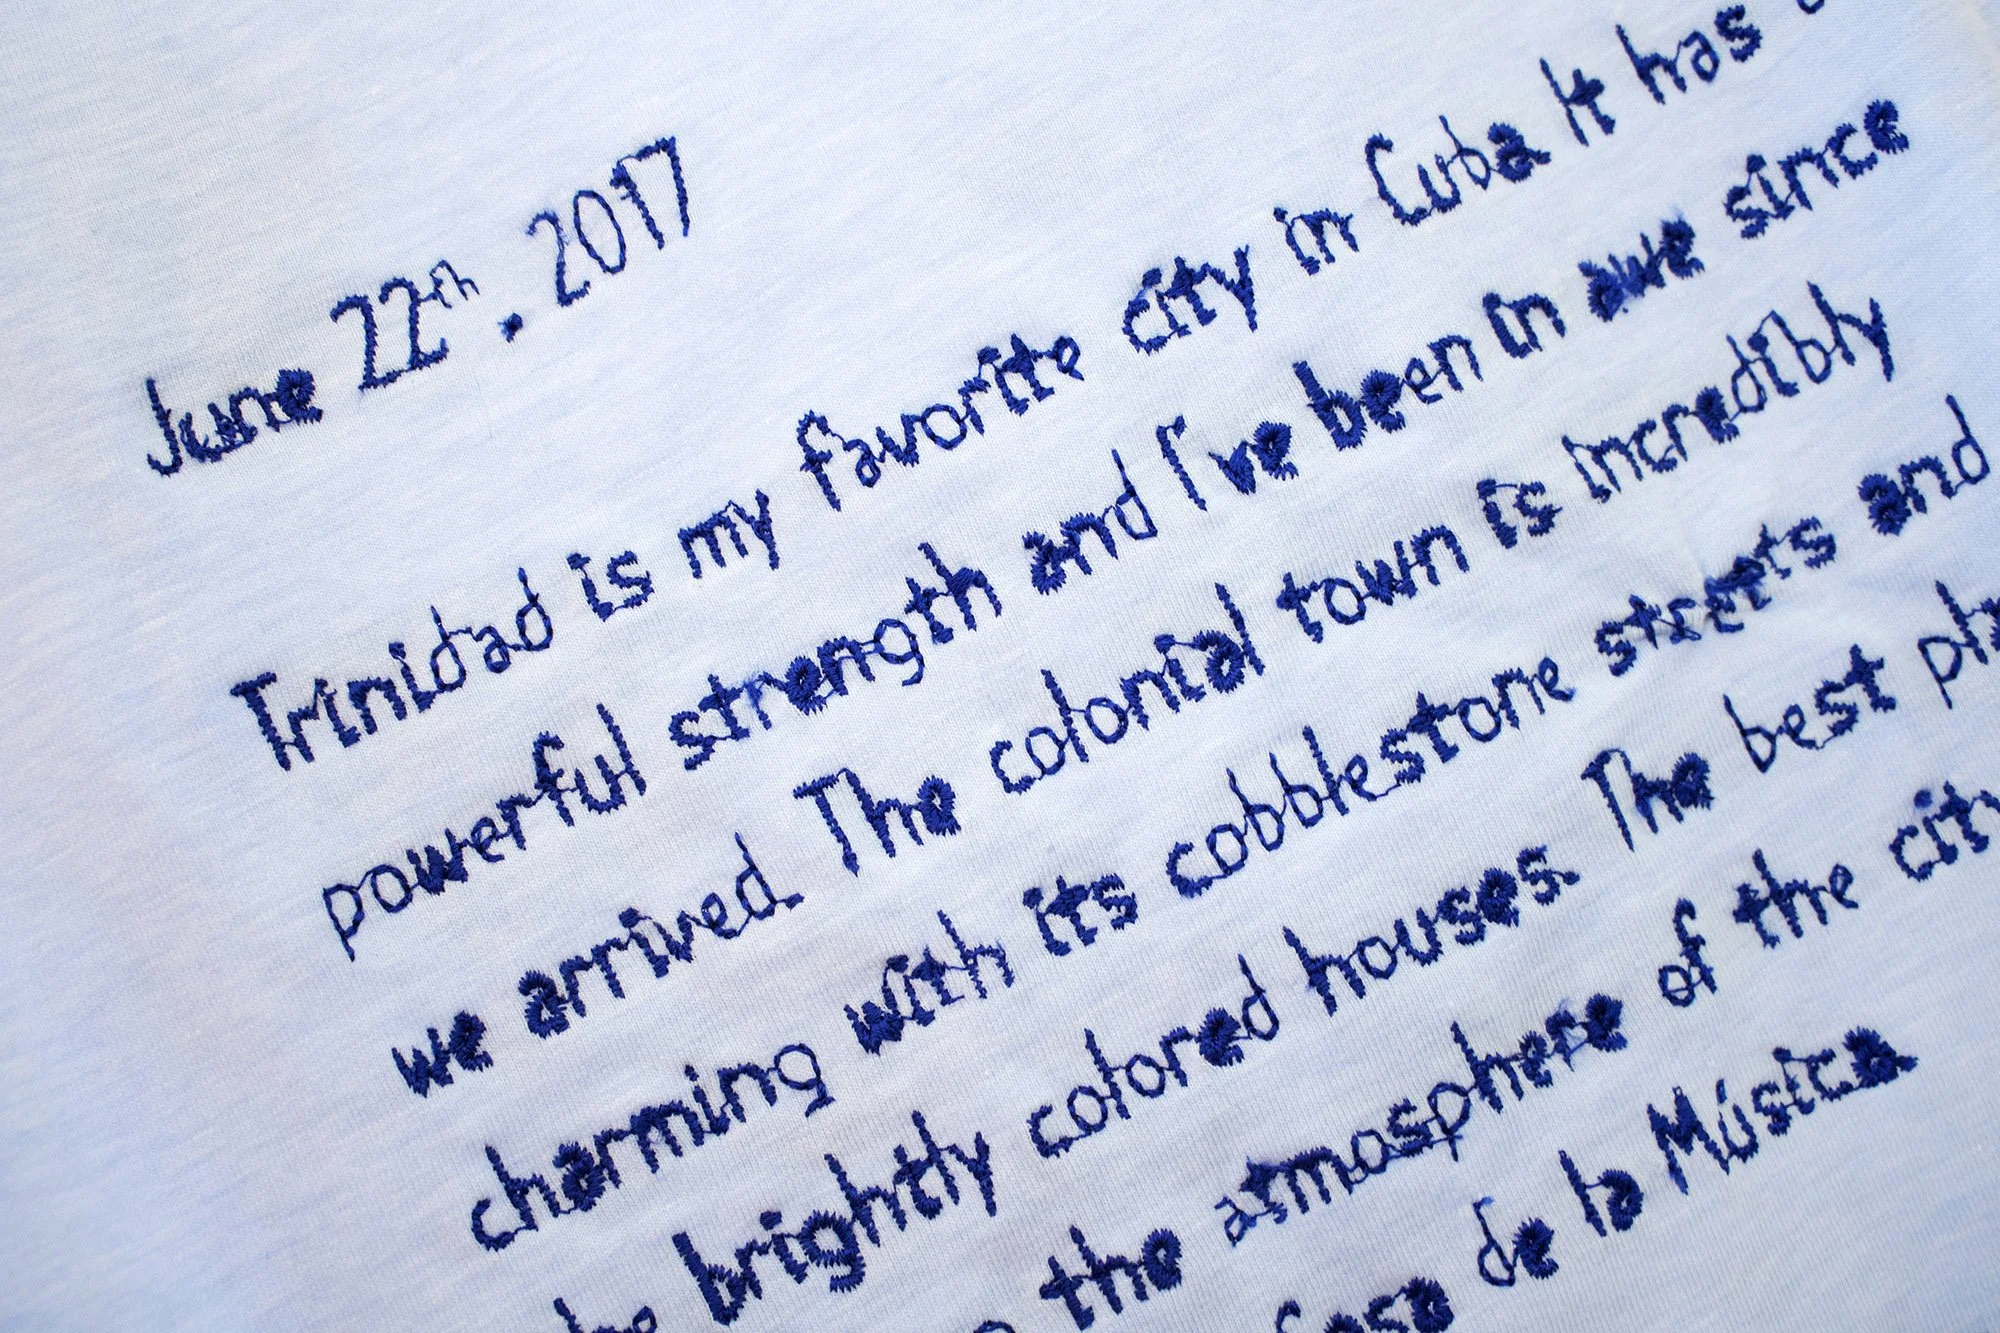 June 22th. 2017
Trinidad is my favorite city in Cuba It has
powerful strength and I've been in awe since
we arrived. The colonial town is incredibly
charming with its cobblestone streets and
brightly colored houses. The best
the atmosphere of the city
de la Música